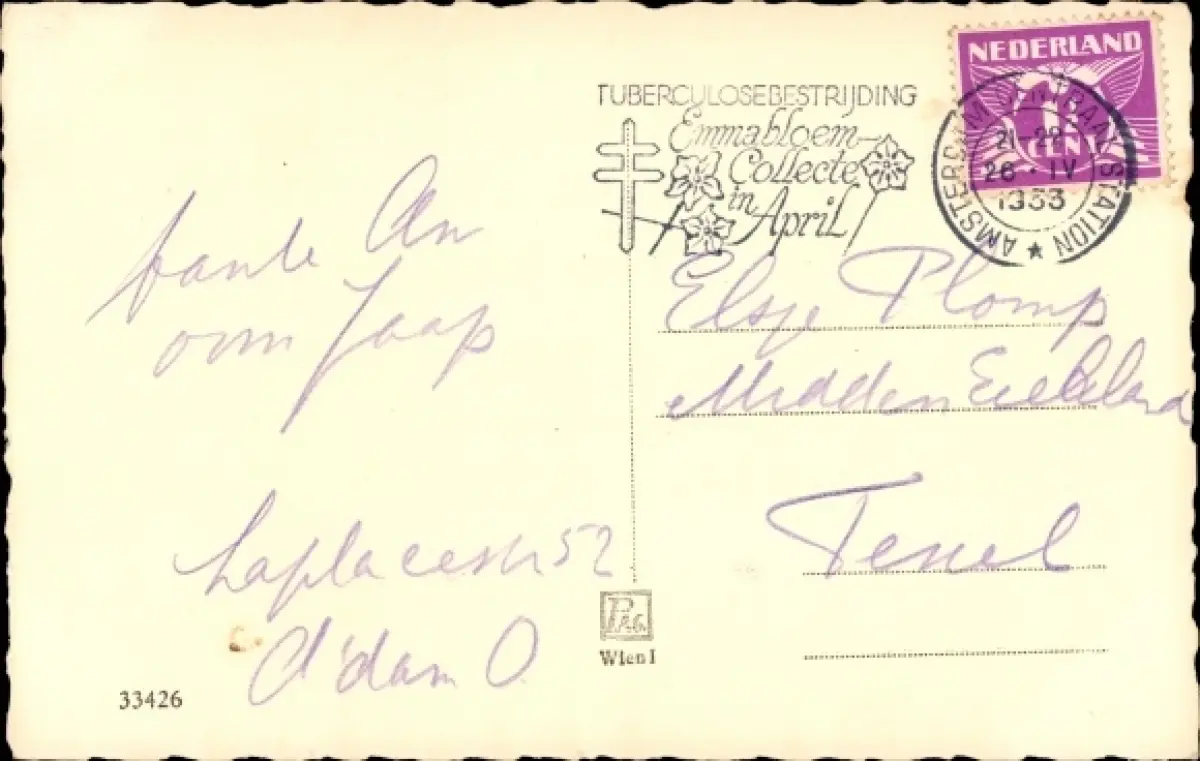 NEDERLAND
1½
CENT
AMSTERDAM CENTRAAL STATION
21-22
26·IV
1953
TUBERCULOSEBESTRIJDING
Emmabloem-
Collecte
in
April
tante An
oom Jaap
Laplacestr 52
A'dam O.
Elsje Plomp
Midden Eierland
Texel
PAG.
Wien I
33426